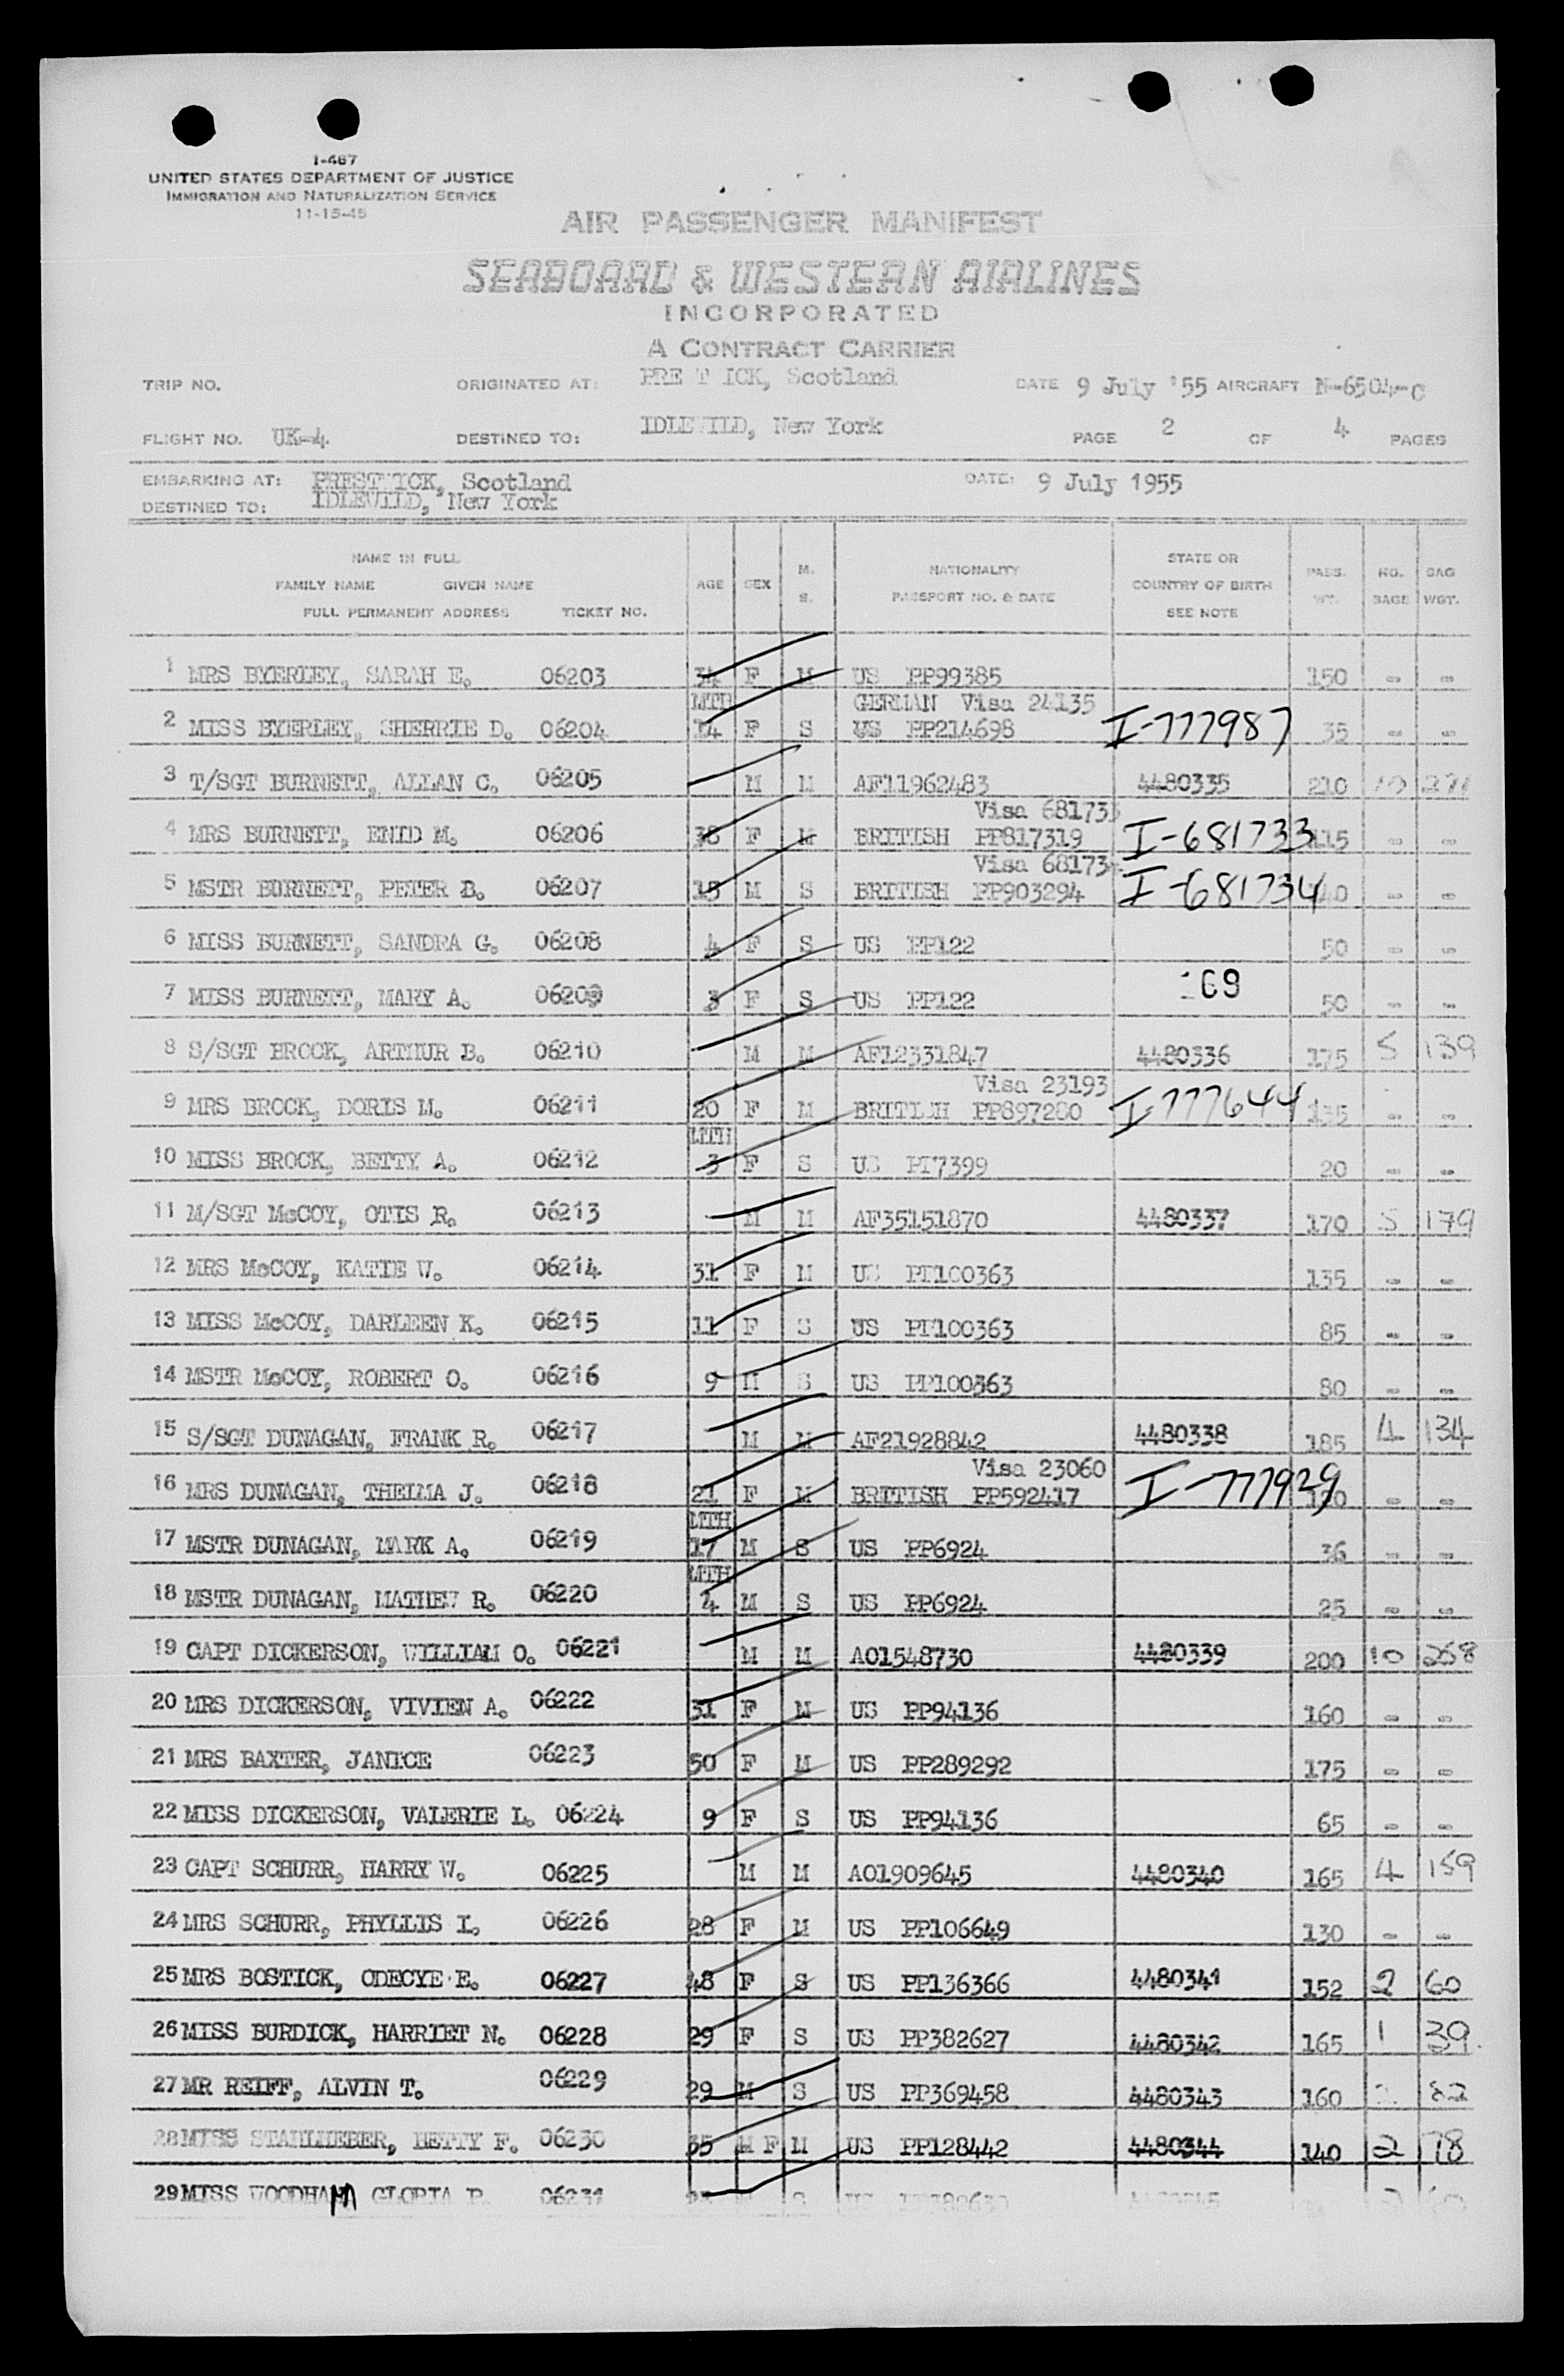 I-467
UNITED STATES DEPARTMENT OF JUSTICE
IMMIGRATION AND NATURALIZATION SERVICE
11-15-45
AIR PASSENGER MANIFEST
SEABOARD & WESTERN AIRLINES
INCORPORATED
A CONTRACT CARRIER
TRIP NO. ORIGINATED AT: PRE T ICK, Scotland DATE 9 July '55 AIRCRAFT N-6504-C
FLIGHT NO. UK-4 DESTINED TO: IDLEWILD, New York PAGE 2 OF 4 PAGES
EMBARKING AT: PRESTWICK, Scotland DATE: 9 July 1955
DESTINED TO: IDLEWILD, New York
NAME IN FULL
FAMILY NAME GIVEN NAME
FULL PERMANENT ADDRESS TICKET NO. AGE SEX M. S. NATIONALITY PASSPORT NO. & DATE STATE OR COUNTRY OF BIRTH SEE NOTE PASS. WT. NO. BAGS BAG WGT.
1 MRS BYERLEY, SARAH E. 06203 34 F M US PP99385 150 - -
MTH GERMAN Visa 24135
2 MISS BYERLEY, SHERRIE D. 06204 14 F S US PP214698 I-777987 35 - -
3 T/SGT BURNETT, ALLAN C. 06205 M M AF11962483 4480335 210 10
Visa 681733
4 MRS BURNETT, ENID M. 06206 38 F M BRITISH PP817319 I-681733 115 - -
Visa 68173
5 MSTR BURNETT, PETER B. 06207 15 M S BRITISH PP903294 I-681734 - -
6 MISS BURNETT, SANDRA G. 06208 4 F S US PP122 50 - -
7 MISS BURNETT, MARY A. 06209 3 F S US PP122 169 50 - -
8 S/SGT BROCK, ARTHUR B. 06210 M M AF12331847 4480336 175 5 139
Visa 23193
9 MRS BROCK, DORIS M. 06211 20 F M BRITISH PP897280 I-777644 135 - -
MTH
10 MISS BROCK, BETTY A. 06212 3 F S US PP7399 20 - -
11 M/SGT McCOY, OTIS R. 06213 M M AF35151870 4480337 170 5 179
12 MRS McCOY, KATIE W. 06214 31 F M US PP100363 135 - -
13 MISS McCOY, DARLEEN K. 06215 11 F S US PP100363 85 - -
14 MSTR McCOY, ROBERT O. 06216 9 M S US PP100363 80 - -
15 S/SGT DUNAGAN, FRANK R. 06217 M M AF21928842 4480338 185 4 134
Visa 23060
16 MRS DUNAGAN, THELMA J. 06218 21 F M BRITISH PP592417 I-777929 - -
MTH
17 MSTR DUNAGAN, MARK A. 06219 17 M S US PP6924 36 - -
MTH
18 MSTR DUNAGAN, MATHEW R. 06220 4 M S US PP6924 25 - -
19 CAPT DICKERSON, WILLIAM O. 06221 M M AO1548730 4480339 200 10 268
20 MRS DICKERSON, VIVIEN A. 06222 31 F M US PP94136 160 - -
21 MRS BAXTER, JANICE 06223 50 F M US PP289292 175 - -
22 MISS DICKERSON, VALERIE L. 06224 9 F S US PP94136 65 - -
23 CAPT SCHURR, HARRY W. 06225 M M AO1909645 4480340 165 4 159
24 MRS SCHURR, PHYLLIS I. 06226 28 F M US PP106649 130 - -
25 MRS BOSTICK, ODECYE E. 06227 48 F S US PP136366 4480341 152 2 60
26 MISS BURDICK, HARRIET N. 06228 29 F S US PP382627 4480342 165 1 39
27 MR REIFF, ALVIN T. 06229 29 M S US PP369458 4480343 160 82
28 MISS STAHLHEBER, BETTY F. 06230 35 M F M US PP128442 4480344 140 2 78
29 MISS WOODHAM GLORIA 06231 S US